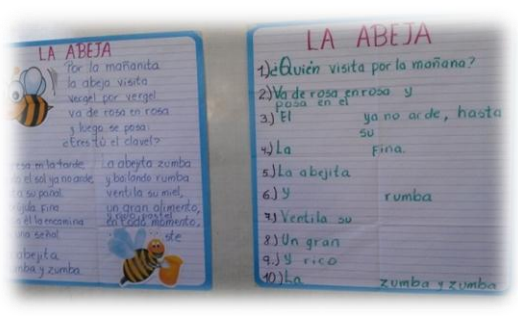 LA ABEJA
Por la mañanita
la abeja visita
vergel por vergel
va de rosa en rosa
y luego se posa:
¿Eres tú el clavel?
sa en la tarde
el sol ya no arde
a su panal
fina
él la encamina
una señal
abejita
zumba y zumba
La abejita zumba
y bailando rumba
ventila su miel,
un gran alimento,
en todo momento,
y rico pastel
LA ABEJA
1) ¿Quién visita por la mañana?
2) Va de rosa en rosa y
posa en el
3) El ya no arde, hasta
su
4) La Fina.
5) La abejita
6) y rumba
7) Ventila su
8) Un gran
9.) y rico
10) La zumba y zumba